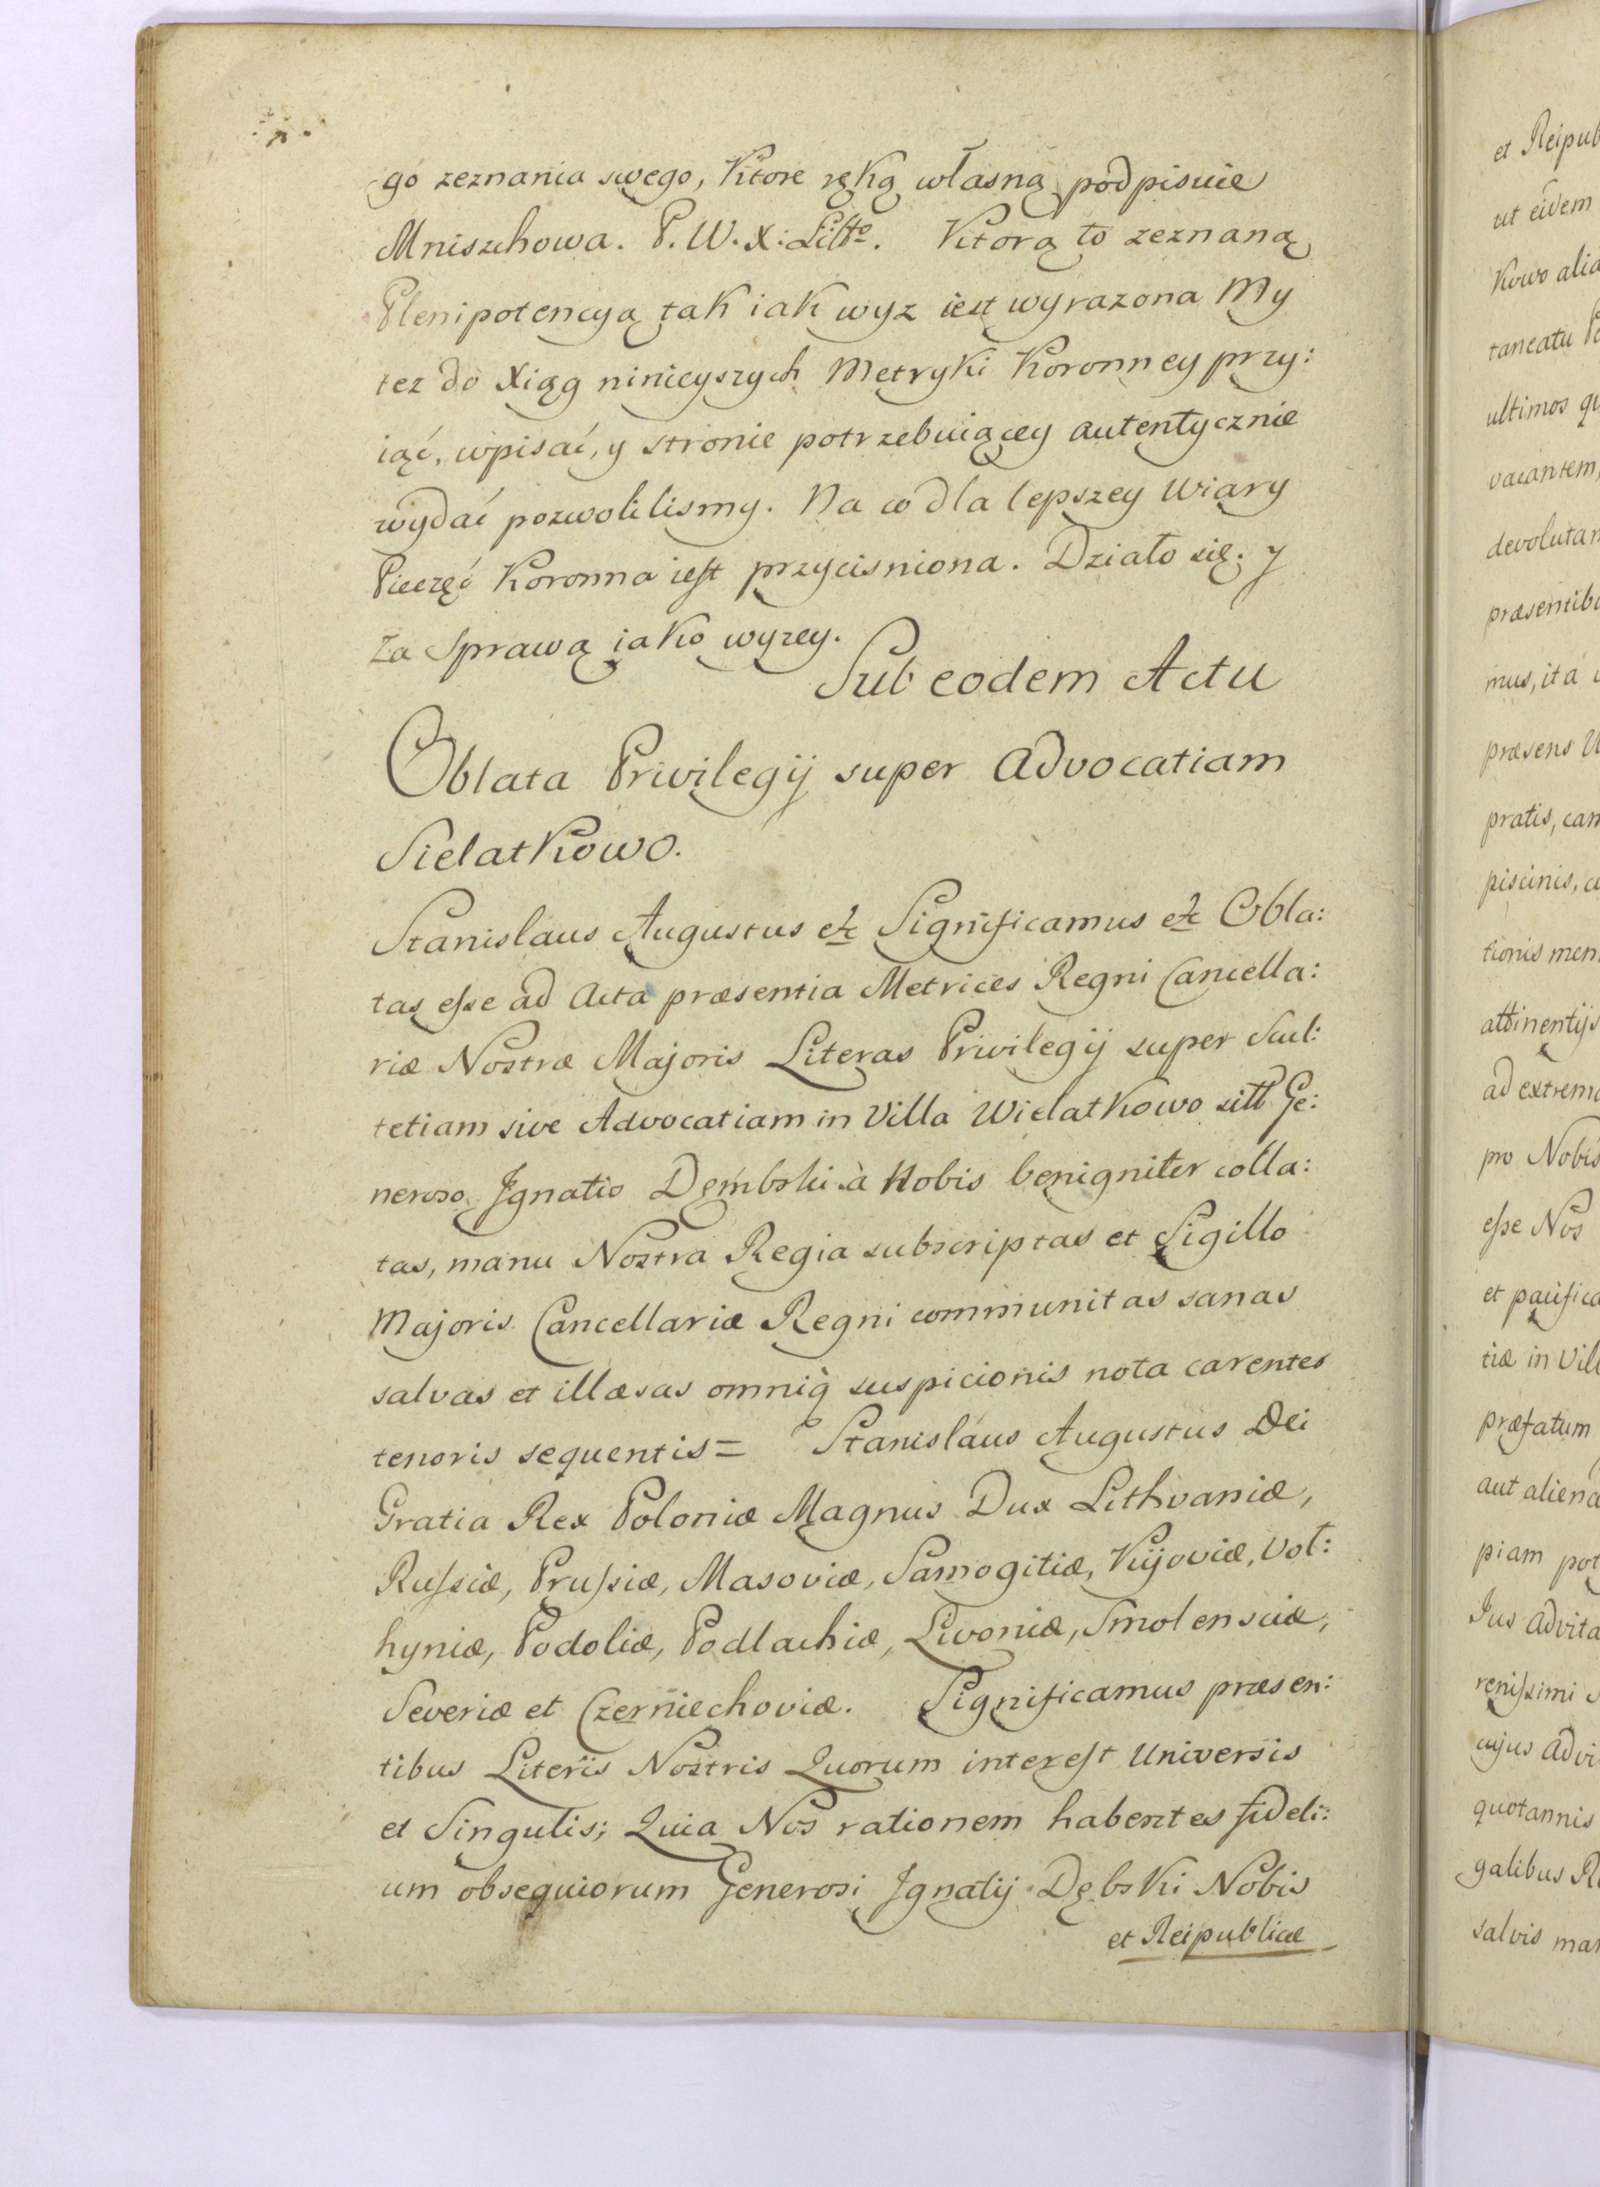 go zeznania swego, Ktore ręką własną podpisuie
Mniszchowa. P. W. X: Litto. Ktorą to zeznaną
Plenipotencyą tak iak wyz iest wyrazona My
tez do Xiąg ninieyszych Metryki Koronney przy:
iąć, wpisać, y stronie potrzebuiącey autentycznie
wydać pozwolilismy. Na co dla lepszey Wiary
Pieczęć Koronna iest przycisniona. Działo się y
za sprawą iako wyzey.
Sub eodem Actu
Oblata Privilegij super Advocatiam
Sielatkowo.
Stanislaus Augustus etc Significamus etc Obla:
tas esse ad Acta præsentia Metrices Regni Cancella:
riæ Nostræ Majoris Literas Privilegij super Scul:
tetiam sive Advocatiam in Villa Wielatkowo sitt Ge:
neroso Ignatio Dęmbski à Nobis benigniter colla:
tas, manu Nostra Regia subscriptas et Sigillo
Majoris Cancellariæ Regni communitas sanas
salvas et illæsas omniq̀ suspicionis nota carentes
tenoris sequentis= Stanislaus Augustus Dei
Gratia Rex Poloniæ Magnus Dux Lithvaniæ,
Russiæ, Prussiæ, Masoviæ, Samogitiæ, Kijoviæ, Vol:
hyniæ, Podoliæ, Podlachiæ, Livoniæ, Smolensciæ,
Severiæ et Czerniechoviæ. Significamus præsen:
tibus Literis Nostris Quorum interest Universis
et Singulis; Quia Nos rationem habentes fideli:
um obsequiorum Generosi Ignatij Dębski Nobis
et Reipublicæ
et Reipub
ut eidem
Kowo alia
taneatu
ultimos
vacantem,
devolutam
præsentib
mus, ita
præsens
pratis, cam
piscinis,
tionis men
attinentijs
ad extrem
pro Nobis
esse Nos
et pacifica
tiæ in Vil
præfatum
aut aliena
piam pot
Jus advita
renissimi
cujus advi
quotannis
galibus
salvis man